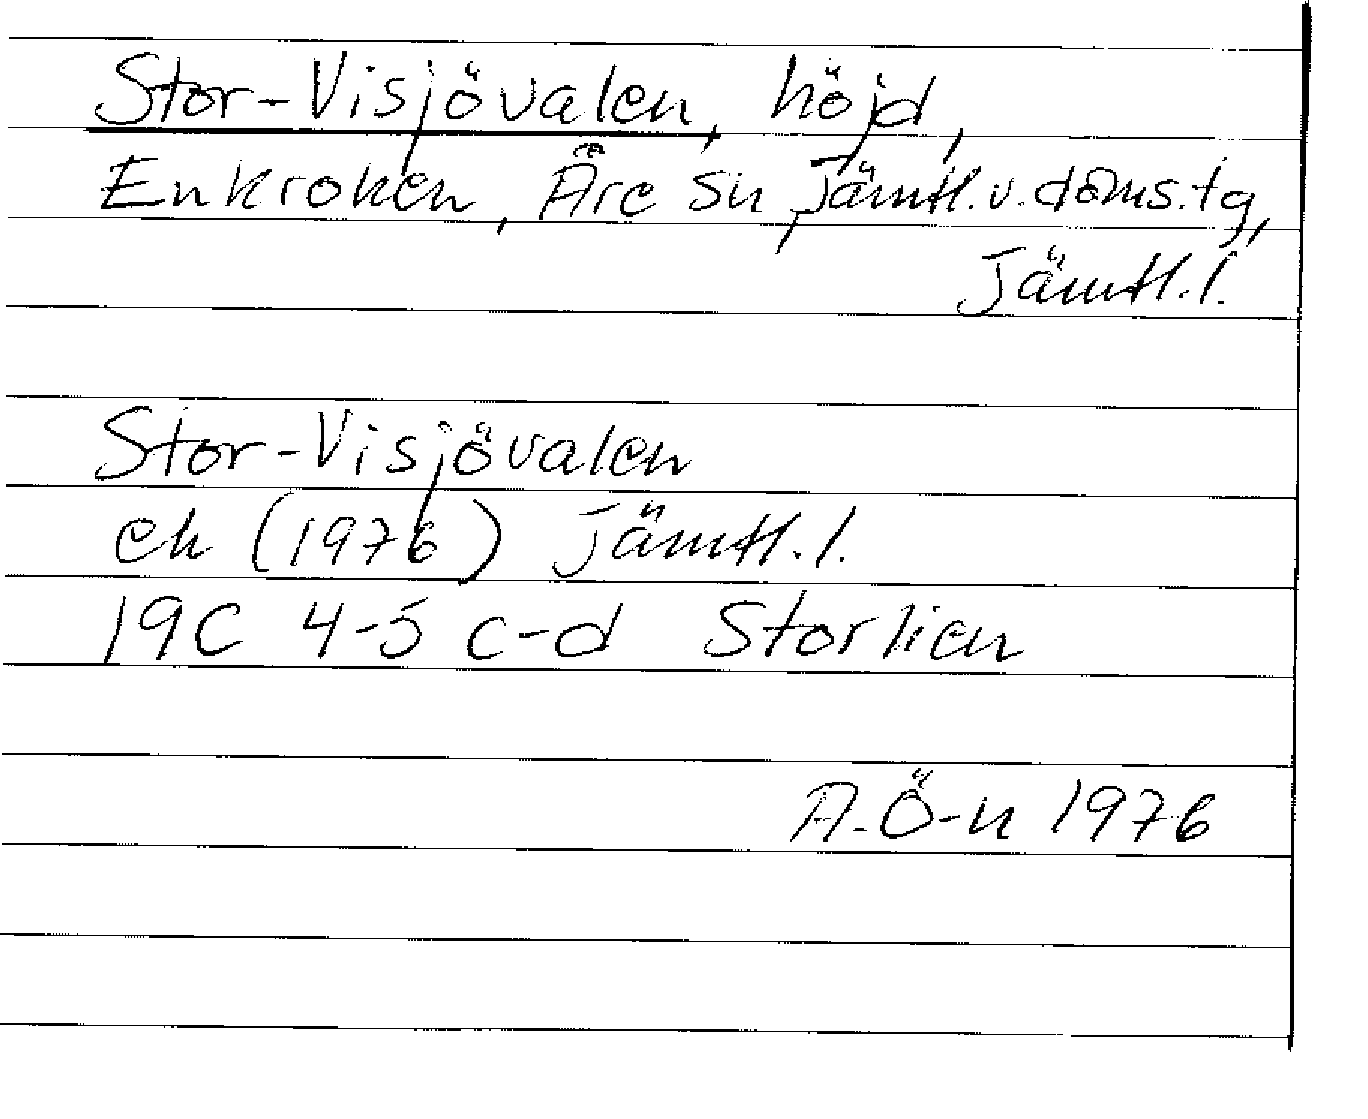 Stor-Visjövalen, höjd,
Enkroken, Åre sn, Jämtl.v.doms.tg,
Jämtl.l.
Stor-Visjövalen
ek (1976) Jämtl.l.
19C 4-5 c-d Storlien
A.Ö-n 1976